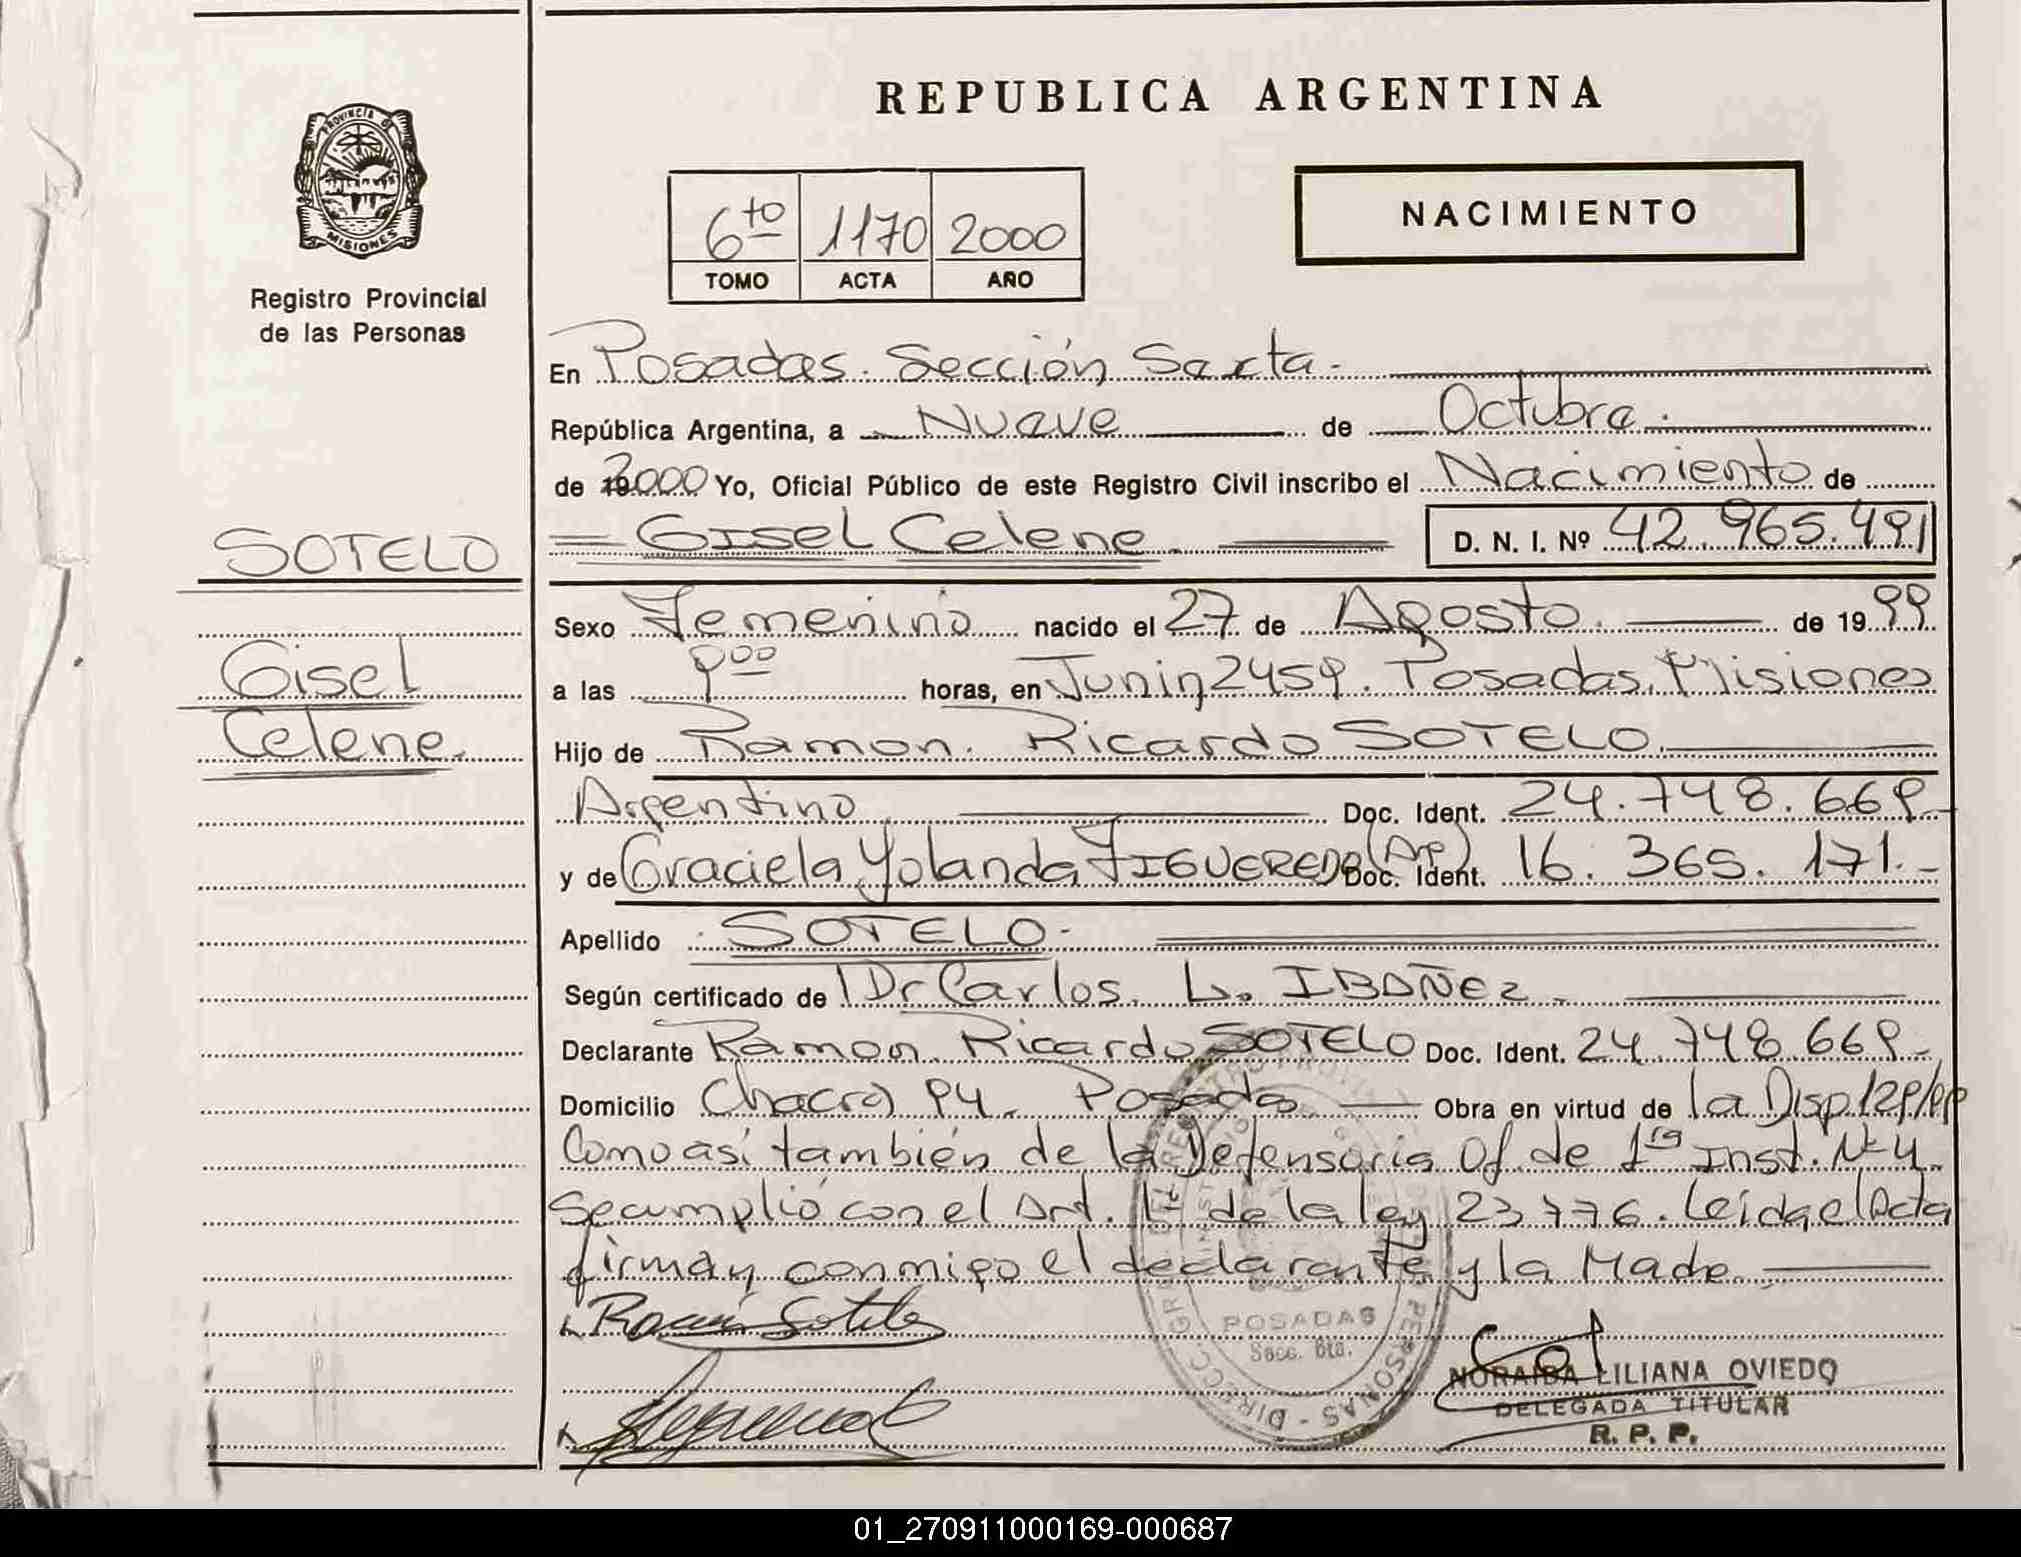 REPUBLICA ARGENTINA
PROVINCIA DE
MISIONES
Registro Provincial
de las Personas
6to 1170 2000
TOMO ACTA AÑO
NACIMIENTO
En Posadas. Sección Sexta.
República Argentina, a Nueve de Octubre.
de 2000 Yo, Oficial Público de este Registro Civil inscribo el Nacimiento de
SOTELO
Gisel
Celene.
Gisel Celene. D. N. I. Nº 42.965.491
Sexo Femenino nacido el 27 de Agosto. de 1999
a las 9 00 horas, en Junin 2459. Posadas, Misiones
Hijo de Ramon. Ricardo SOTELO.
Argentino Doc. Ident. 24.748.669.-
y de Graciela Yolanda FIGUEREDO (Arg) Doc. Ident. 16.365.171.-
Apellido SOTELO.
Según certificado de Dr Carlos. L. IBAÑEZ.
Declarante Ramon. Ricardo SOTELO Doc. Ident. 24.748.669-
Domicilio Chacra 94. Posadas Obra en virtud de la Disp 129/99
Como así también de la Defensoria Of. de 1ra Inst. Nº 4
Se cumplió con el Art. 1º de la ley 23776. Leída el Acta
firman conmigo el declarante y la Madre
Ramón Sotelo
POSADAS
Secc. 6ta.
NORAIBA LILIANA OVIEDO
DELEGADA TITULAR
R. P. P.
01_270911000169-000687